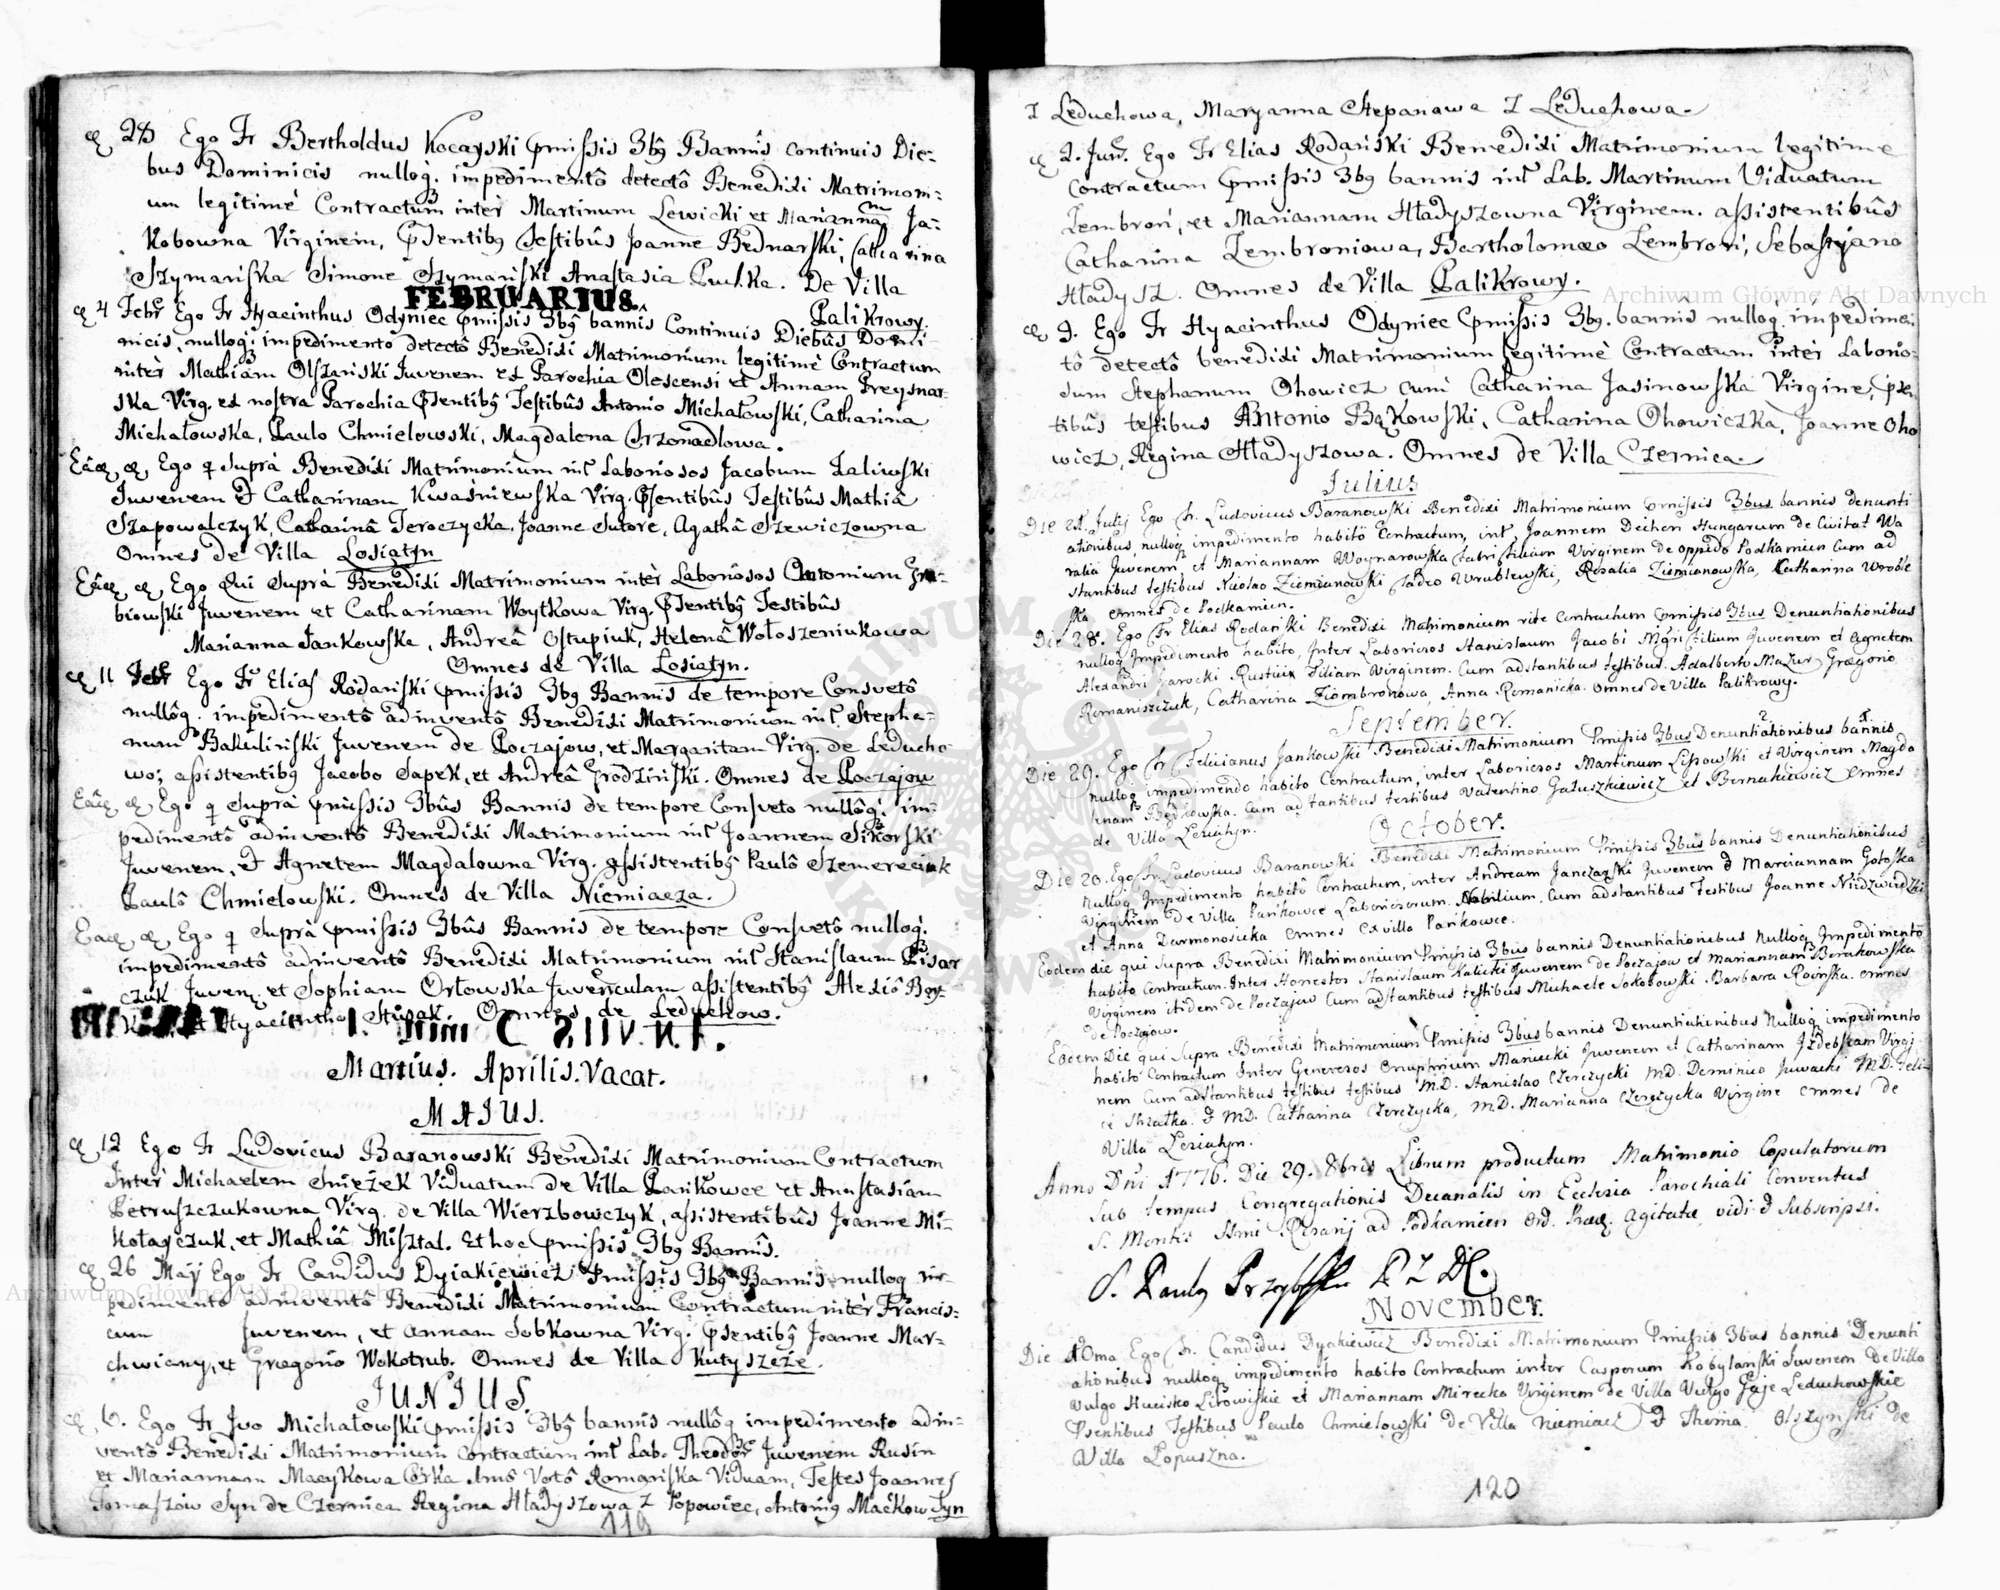 28 Ego Fr Bertholdus Kocayski pmissis 3bg Bannis continuis Die=
bus Dominicis nullog. impedimentô detectô Benedixi Matrimoni=
um legitimè Contractum inter Martinum Lewicki et Mariannam Ja=
kobowna Virginem, psentibg Testibûs Joanne Bednarski, Catharina
Szymańska Simone Szymański Anastasia De Villa
FEBRUARIUS. Palikrowy.
4 Febr Ego Fr Hyacinthus Odyniec pmissis 3bg bannîs Continuis Diebûs Domi
nicis, nullog. impedimento detectô Benedixi Matrimonium legitimè Contractum
intèr Mathiam Olszański Juvenem ex Parochia Olescensi et Annam Preysnar=
ska Virg. ex nostra Parochia psentibg Testibûs Antonio Michałowski, Catharina
Michałowska, Paulo Chmielowski, Magdalena
Eâd, Ego q Suprà Benedixi Matrimonium int Laboriosos Jacobum Zaliwski
Juvenem & Catharinam Kwaśniewska Virg. psentibûs Testibûs Mathiâ
Szapowalczyk, Catharinâ Jeroczycka, Joanne Sutore, Agathâ Szewiczowna
Omnes de Villa Losiatyn
Eâd Ego Qui Suprà Benedixi Matrimonium intèr Laboriosos Antonium Gra=
biowski Juvenem et Catharinam Woytkowa Virg. psentibg Testibûs
Marianna Jankowska, Andreâ Ostupiuk, Helenâ Wołoszeniukowa
Omnes de Villa Losiatyn.
11 Febr Ego Fr Elias Rodański pmissis 3bg Bannis de tempore Consvetô
nullôg. impedimentô adinventô Benedixi Matrimonium int Stepha=
num Bakuliński Juvenem de Poczajow, et Margaritam Virg. de Leducho=
wo; assistentibg Jacobo Sapek, et Andreâ Grodziński. Omnes de Poczajow
Eâd Ego q Suprà pmissis 3bûs Bannis de tempore Consveto nullôg. im=
pedimentô adinventô Benedixi Matrimonium int Joannem Sikorski
Juvenem, & Agnetem Magdalowna Virg. assistentibg Paulô Szemereciuk
Paulô Chmielowski. Omnes de Villa Niemiacza.
Ead Ego q Suprà pmissis 3bûs Bannis de tempore Consvetô nullog.
impedimentô adinventô Benedixi Matrimonium int Stanislaum Pisar
czuk Juvem et Sophiam Orłowska Juvenculam assistentibg Alexiô Boy=
Hyacintho Stupak. Omnes de Leduchow.
Martius. Aprilis. Vacat.
MAIUS.
12 Ego Fr Ludovicus Baranowski Benedixi Matrimonium Contractum
Intèr Michaelem Snieżek Viduatum de Villa Pańkowce et Anastasiam
Petruszczukowna Virg. de Villa Wierzbowczyk, assistentibûs Joanne Mi=
kołayczuk, et Mathiâ Misztal. Et hoc pmissis 3bg Bannîs.
26 Maij Ego Fr Candidus Dyiakiewicz Pmissis 3bg Bannis nullog im=
pedimento adinventô Benedixi Matrimonium Contractum intèr Francis=
cum Juvenem, et Annam Sobkowna Virg. psentibg Joanne Mar=
chwiany, et Gregorio Wokotrub. Omnes de Villa Kutyszcze.
JUNIUS.
6. Ego Fr Jvo Michałowski pmissis 3bg bannis nullôg impedimento adin=
ventô Benedixi Matrimonium contractum int Lab. Theodor Juvenem Rusin
et Mariannam Macykowa Córka Imô Votô Romańska Viduam, Testes Joannes
Tomaszów Syn de Czernica Regina Hładyszowa z Popowiec, Antonig Maćkow Syn
119
z Leduchowa, Maryanna Stepanowa z Leduchowa.
2. Jun. Ego Fr Elias Rodański Benedixi Matrimonium legitime
contractum pmissis 3bg bannis int Lab. Martinum Viduatum
Zembroń, et Mariannam Hładyszowna Virginem. assistentibûs
Catharina Zembroniowa, Bartholomæo Zembroń, Sebastyano
Hładysz. Omnes de Villa Palikrowy.
9. Ego Fr Hyacinthus Odyniec pmissis 3bg. bannîs nullog. impedimen
tô detectô benedixi Matrimonium legitimè Contractum intèr Laborio=
sum Stephanum Ohowicz cum Catharina Jasinowska Virgine, psen
tibûs testibus Antonio Bąkowski, Catharina Ohowiczka, Joanne Oho
wicz, Regina Hładyszowa. Omnes de Villa Czernica.
Julius
Die 21. Julij Ego Fr. Ludovicus Baranowski Benedixi Matrimonium pmissis 3bus bannis denunti
ationibus nulloq impedimento habitô Contractum, int Joannem Deihen Hungarum de Civitat Wa
ralia Juvenem, et Mariannam Woynarowska Fabri filiam Virginem de oppido Podkamien Cum ad
stantibus testibus Nicolao Ziemianowski Tadeo Wrublewski, Rosalia Ziemianowska, Catharina Wroble
ska omnes de Podkamien.
Die 28. Ego Fr Elias Rodański Benedixi Matrimonium rite Contractum pmissis 3bus Denuntiationibus
nulloq Impedimento habito, Inter Laboriosos Stanislaum Jacobi Nigri filium Juvenem et Agnetem
Alexandri Jarocki Rustici Filiam Virginem. Cum adstantibus testibus. Adalberto Mazur Gregorio
Romaniszczuk, Catharina Ziombroniowa, Anna Romanicka. Omnes de Villa Palikrowy.
September.
Die 29. Ego Fr Felicianus Jankowski Benedixi Matrimonium Pmissis 3bus Denuntiationibus bannis
nulloq impedimendo habito Contractum, inter Laboriosos Martinum Lissowski et Virginem Magda
lenam Cum adstantibus testibus Valentino Gałuszkiewicz et Bernakiewicz omnes
de Villa
October.
Die 20. Ego Fr Ludovicus Baranowski Benedixi Matrimonium Pmissis 3bus bannis Denuntiationibus
nulloq Impedimento habitô Contractum, inter Andream Janczarski Juvenem & Mariannam Gołoska
Virginem de Villa Pańkowce Laboriosorum. Cum adstantibus Testibus Joanne Niedzwiedzki
et Anna Darmonosicka omnes ex villa Pańkowce.
Eodem die qui Supra Benedixi Matrimonium Pmissis 3bus bannis Denuntiationibus Nulloq Impedimento
habito Contractum. Inter Honestos Stanislaum Kalicki Juvenem de Poczajow et Mariannam Bernakowska
Virginem itidem de Poczajow Cum adstantibus testibus Michaele Sokołowski. Barbara Roinska. omnes
de Poczajow.
Eodem Die qui Supra Benedixi Matrimonium Pmissis 3bus bannis Denuntiationibus Nulloq impedimento
habitô Contractum Inter Generosos Onuphrium Maniecki Juvenem et Catharinam Izdebskam Virgi
nem Cum adstantibus testibus testibus M.D. Stanislao Czerczycki M.D. Dominico Juwacki M.D. Feli=
ce Skrzatka. & M.D. Catharina Czerczycka, M.D. Marianna Czerczycka Virgine omnes de
Villa
Anno Dni 1776. Die 29. 8bris Librum productum Matrimonio Copulatorum
Sub tempus Congregationis Decanalis in Ecclesia Parochiali Conventus
S. Montis Ssmi Rosarij ad Podkamien Ord. Præd. agitatæ vidi & Subscripsi.
November.
Die 10ma Ego Fr. Candidus Dyakiewicz Benedixi Matrimonium Pmissis 3bus bannis Denunti
ationibus nulloq impedimento habito Contractum inter Casporum Kobylański Juvenem De Villa
Vulgo Hucisko Litowiskie et Mariannam Mirecka Virginem de Villa Vulgo Gaje Leduchowskie
Psentibus Testibus Paulo Chmielowski de Villa Niemiacz & Thoma Olszynski de
Villa Lopuszna.
120
Archiwum Główne Akt Dawnych
Archiwum Główne Akt Dawnych